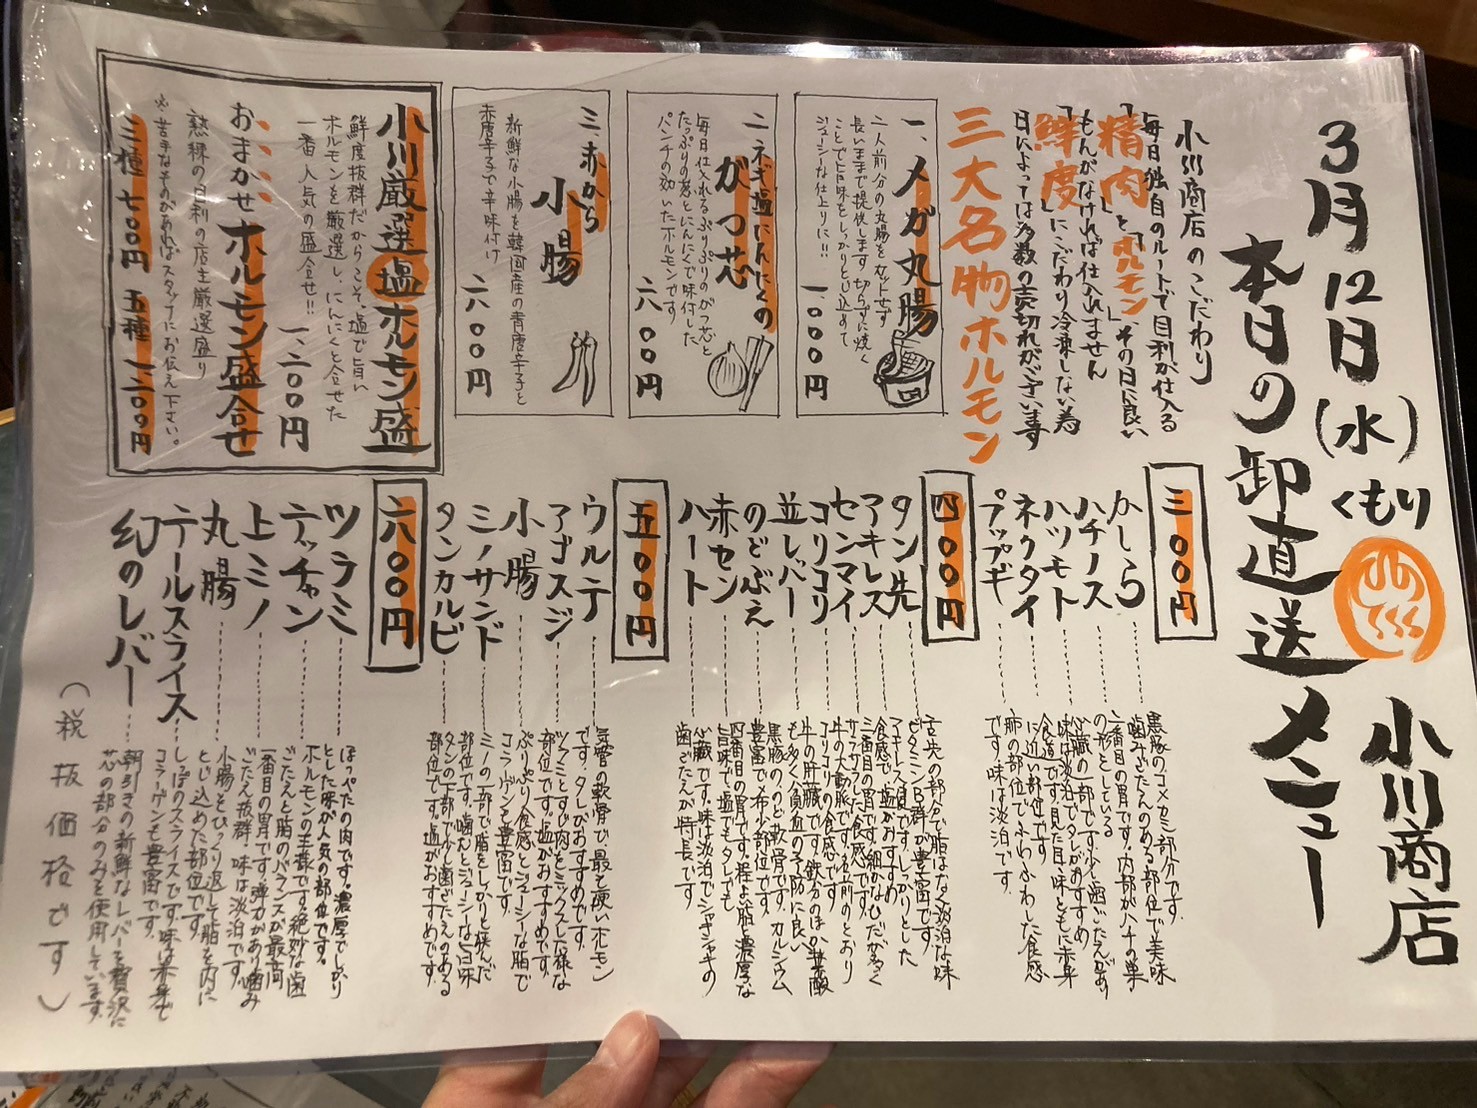 3月12日(水)くもり
小川商店
本日の卸直送メニュー
小川商店のこだわり
毎日独自のルートで目利が仕入る
「精肉」と「ホルモン」、その日に良い
もんがなければ仕入れません
「鮮度」にこだわり冷凍しない為
日によっては多数の売切れがございます
三大名物ホルモン
一、メガ丸腸
二人前分の丸腸をカットせず
長いまま提供します。切らずに焼く
ことで旨味をしっかりとじ込めて
ジューシーな仕上りに!!
一、000円
二、ネギ塩にんにくの
がつ芯
毎日仕入れるぷりぷりのがつ芯と
たっぷりの葱とにんにくで味付した
パンチの効いたホルモンです
六00円
三、赤から
小腸
新鮮な小腸を韓国産の青唐辛子と
赤唐辛子で辛味付け
六00円
小川厳選塩ホルモン盛
鮮度抜群だからこそ、塩で旨い
ホルモンを厳選し、にんにくと合せた
一番人気の盛合せ!!
一、二00円
おまかせホルモン盛合せ
熟練の目利の店主厳選盛り
※苦手なものがあればスタッフにお伝え下さい。
三種 七00円 五種 一、二00円
三00円
かしら
黒豚のコメカミ部分です。
歯みごたえのある部位で美味
ハチノス
二番目の胃です。内部がハチの巣
の形をしている
ハツモト
心臓の一部です。少し歯ごたえがあり
味は淡泊でタレがおすすめ
ネクタイ
食道です。見た目、味ともに赤身
に近い部位です
プップギ
肺の部位でふわふわした食感
です。味は淡泊です
四00円
タン先
舌先の部分で脂はなく淡泊な味
ビタミンB群が豊富です。
アキレス
アキレス腱です。しっかりとした
食感で塩がおすすめ
センマイ
三番目の胃です。細かなひだが多く
サクサクした食感です。
コリコリ
牛の大動脈です。名前のとおり
コリコリな食感です
並レバー
牛の肝臓です。鉄分のほか葉酸
も多く貧血の予防に良い
のどぶえ
黒豚ののど軟骨です。カルシウム
豊富で希少部位です。
赤セン
四番目の胃です。程よい脂と濃厚な
旨味で塩でもタレでも
ハート
心臓です。味は淡泊でシャキシャキの
歯ごたえが特長です。
五00円
ウルテ
気管の軟骨で、最も硬いホルモン
です。タレがおすすめです。
アゴスジ
ツラミとすじ肉をミックスした様な
部位です。塩がおすすめです。
小腸
ぷりぷり食感とジューシーな脂で
コラーゲンも豊富です。
ミノサンド
ミノの一部で脂をしっかりと挟んだ
部位です。噛むとジューシーな旨味
タンカルビ
タンの下部で少し歯ごたえのある
部位です。塩がおすすめです。
六00円
ツラミ
ほっぺたの肉です。濃厚でしっかり
とした味が人気の部位です。
テッチャン
ホルモンの王様です。絶妙な歯
ごたえと脂のバランスが最高
上ミノ
一番目の胃です。弾力があり歯み
ごたえ抜群・味は淡泊です。
丸腸
小腸をひっくり返して脂を内に
とじ込めた部位です。
テールスライス
しっぽのスライスです。味は赤身で
コラーゲンも豊富です。
幻のレバー
朝引きの新鮮なレバーを贅沢に
芯の部分のみを使用しています。
(税抜価格です)